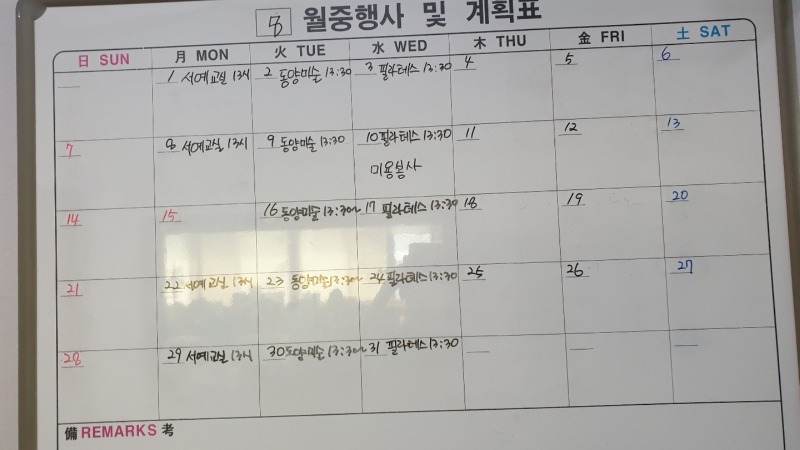 8 월중행사 및 계획표
日 SUN 月 MON 火 TUE 水 WED 木 THU 金 FRI 土 SAT
1 서예교실 13시 2 동양미술 13:30 3 필라테스 13:30 4 5 6
7 8 서예교실 13시 9 동양미술 13:30 10 필라테스 13:30 11 12 13
미용봉사
14 15 16 동양미술 13:30~ 17 필라테스 13:30 18 19 20
21 22 서예교실 13시 23 동양미술 13:30~ 24 필라테스 13:30 25 26 27
28 29 서예교실 13시 30 동양미술 13:30~ 31 필라테스 13:30
備 REMARKS 考